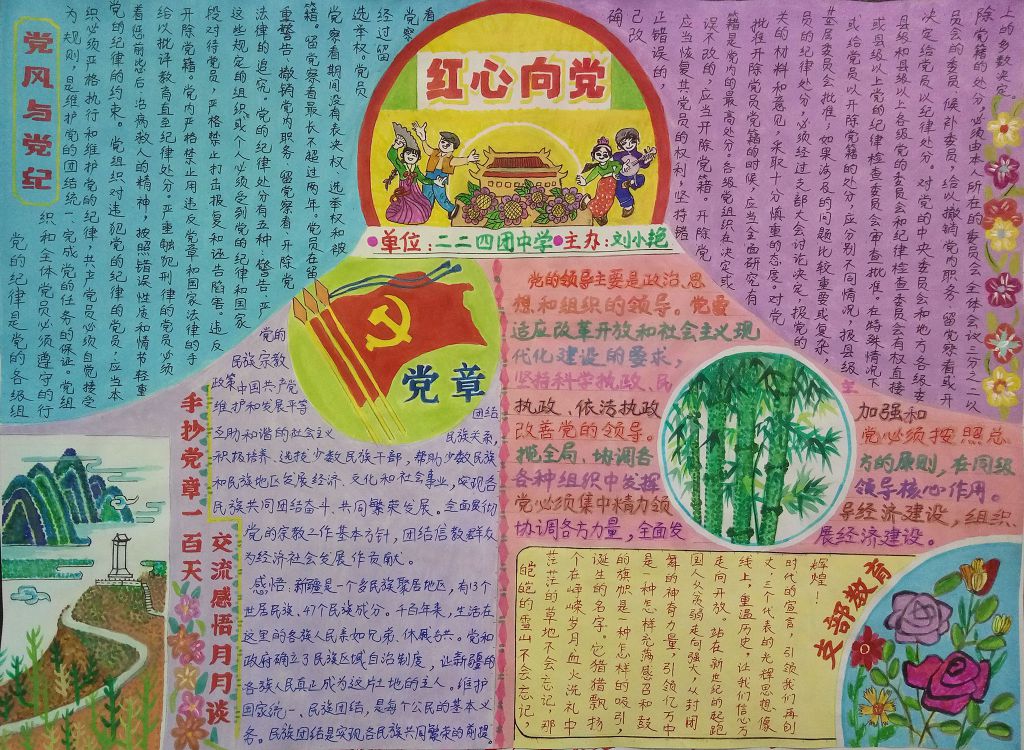 红心向党
单位:二二四团中学 主办:刘小艳
党风与党纪
党的纪律是党的各级组
织和全体党员必须遵守的行
为规则,是维护党的团结统一、完成党的任务的保证。党组
织必须严格执行和维护党的纪律,共产党员必须自觉接受
党的纪律的约束。党组织对违犯党的纪律的党员,应当本
着惩前毖后、治病救人的精神,按照错误性质和情节轻重
给以批评教育直至纪律处分。严重触犯刑律的党员必须
开除党籍。党内严格禁止用违反党章和国家法律的手
段对待党员,严格禁止打击报复和诬告陷害。违反
这些规定的组织或个人必须受到党的纪律和国家
法律的追究。党的纪律处分有五种:警告、严
重警告、撤销党内职务、留党察看、开除党
籍。留党察看最长不超过两年。党员在留
党察看期间没有表决权、选举权和被
选举权。党员
经过留
党察
看
确已改
正错误的,
应当恢复其党员的权利;坚持错
误不改的,应当开除党籍。开除党
籍是党内的最高处分。各级党组织在决定或
批准开除党员党籍的时候,应当全面研究有
关的材料和意见,采取十分慎重的态度。对党
员的纪律处分,必须经过支部大会讨论决定,报党的
基层委员会批准;如果涉及的问题比较重要或复杂,
或给党员以开除党籍的处分,应分别不同情况,报县级
或县级以上党的纪律检查委员会审查批准。在特殊情况下
县级和县级以上各级党的委员会和纪律检查委员会有权直接
决定给党员以纪律处分。对党的中央委员会和地方各级委
员会的委员、候补委员,给以撤销党内职务、留党察看或开
除党籍的处分,必须由本人所在的委员会全体会议三分之二以
上的多数决定。
党章
手抄党章一百天
交流感悟月月谈
党的
民族宗教
政策:中国共产党
维护和发展平等
团结
互助和谐的社会主义 民族关系,
积极培养、选拔少数民族干部,帮助少数民族
和民族地区发展经济、文化和社会事业,实现各
民族共同团结奋斗、共同繁荣发展。全面贯彻
党的宗教工作基本方针,团结信教群众
为经济社会发展作贡献。
感悟:新疆是一个多民族聚居地区,有13个
世居民族,47个民族成分。千百年来,生活在
这里的各族人民亲如兄弟、休戚与共。党和
政府确立了民族区域自治制度,让新疆的
各族人民真正成为这片土地的主人。维护
国家统一、民族团结,是每个公民的基本义
务。民族团结是实现各民族共同繁荣的前提。
党的领导主要是政治、思
想和组织的领导。党要
适应改革开放和社会主义现
代化建设的要求,
坚持科学执政、民主
执政、依法执政 加强和
改善党的领导。 党必须按照总
揽全局、协调各 方的原则,在同级
各种组织中发挥 领导核心作用。
党必须集中精力领 导经济建设,组织、
协调各方力量,全面发 展经济建设。
支部教育
皑皑的雪山不会忘记,
茫茫的草地不会忘记,那
个在峥嵘岁月、血火洗礼中
诞生的名字。它猎猎飘扬
的旗帜是一种怎样的吸引,
是一种怎样充满感召和鼓
舞的神奇力量,引领亿万中
国人从贫弱走向强大,从封闭
走向开放。站在新世纪的起跑
线上,重温历史,让我们信心万
丈;三个代表的光辉思想,像
时代的宣言,引领我们再创
辉煌!